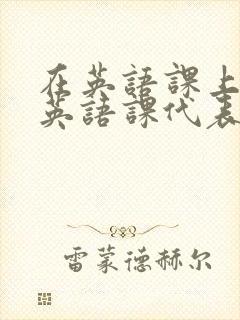 在英語課上
英語課代表
雷蒙德赫尔